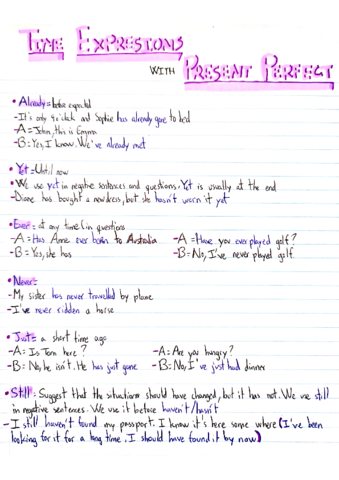 TIME EXPRESIONS
WITH PRESENT PERFECT
• Already = before expected
- It's only 9 o'clock and Sophie has already gone to bed
- A = John, this is Emma
- B = Yes, I know. We've already met
• Yet = Until now
• We use yet in negative sentences and questions, Yet is usually at the end
- Diane has bought a new dress, but she hasn't worn it yet
• Ever = at any time (in questions
- A = Has Anne ever been to Australia - A = Have you ever played golf?
- B = Yes, she has - B = No, I've never played golf.
• Never =
- My sister has never travelled by plane
- I've never ridden a horse
• Just = a short time ago
- A = Is Tom here? - A = Are you hungry?
- B = No, he isn't. He has just gone - B = No, I've just had dinner
• Still = Suggest that the situation should have changed, but it has not. We use still
in negative sentences. We use it before haven't/hasn't
- I still haven't found my passport. I know it's here some where (I've been
looking for it for a long time, I should have found it by now)